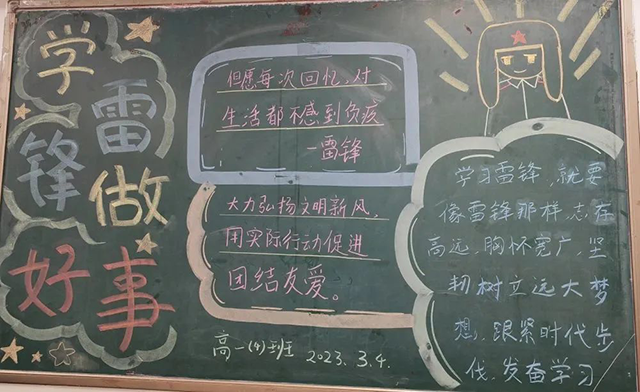 学雷
锋做
好事
但愿每次回忆,对
生活都不感到负疫
—雷锋
大力弘扬文明新风,
用实际行动促进
团结友爱。
高一(4)班 2023.3.4.
学习雷锋,就要
像雷锋那样,志存
高远,胸怀宽广,坚
韧树立远大梦
想,跟紧时代步
伐,发奋学习